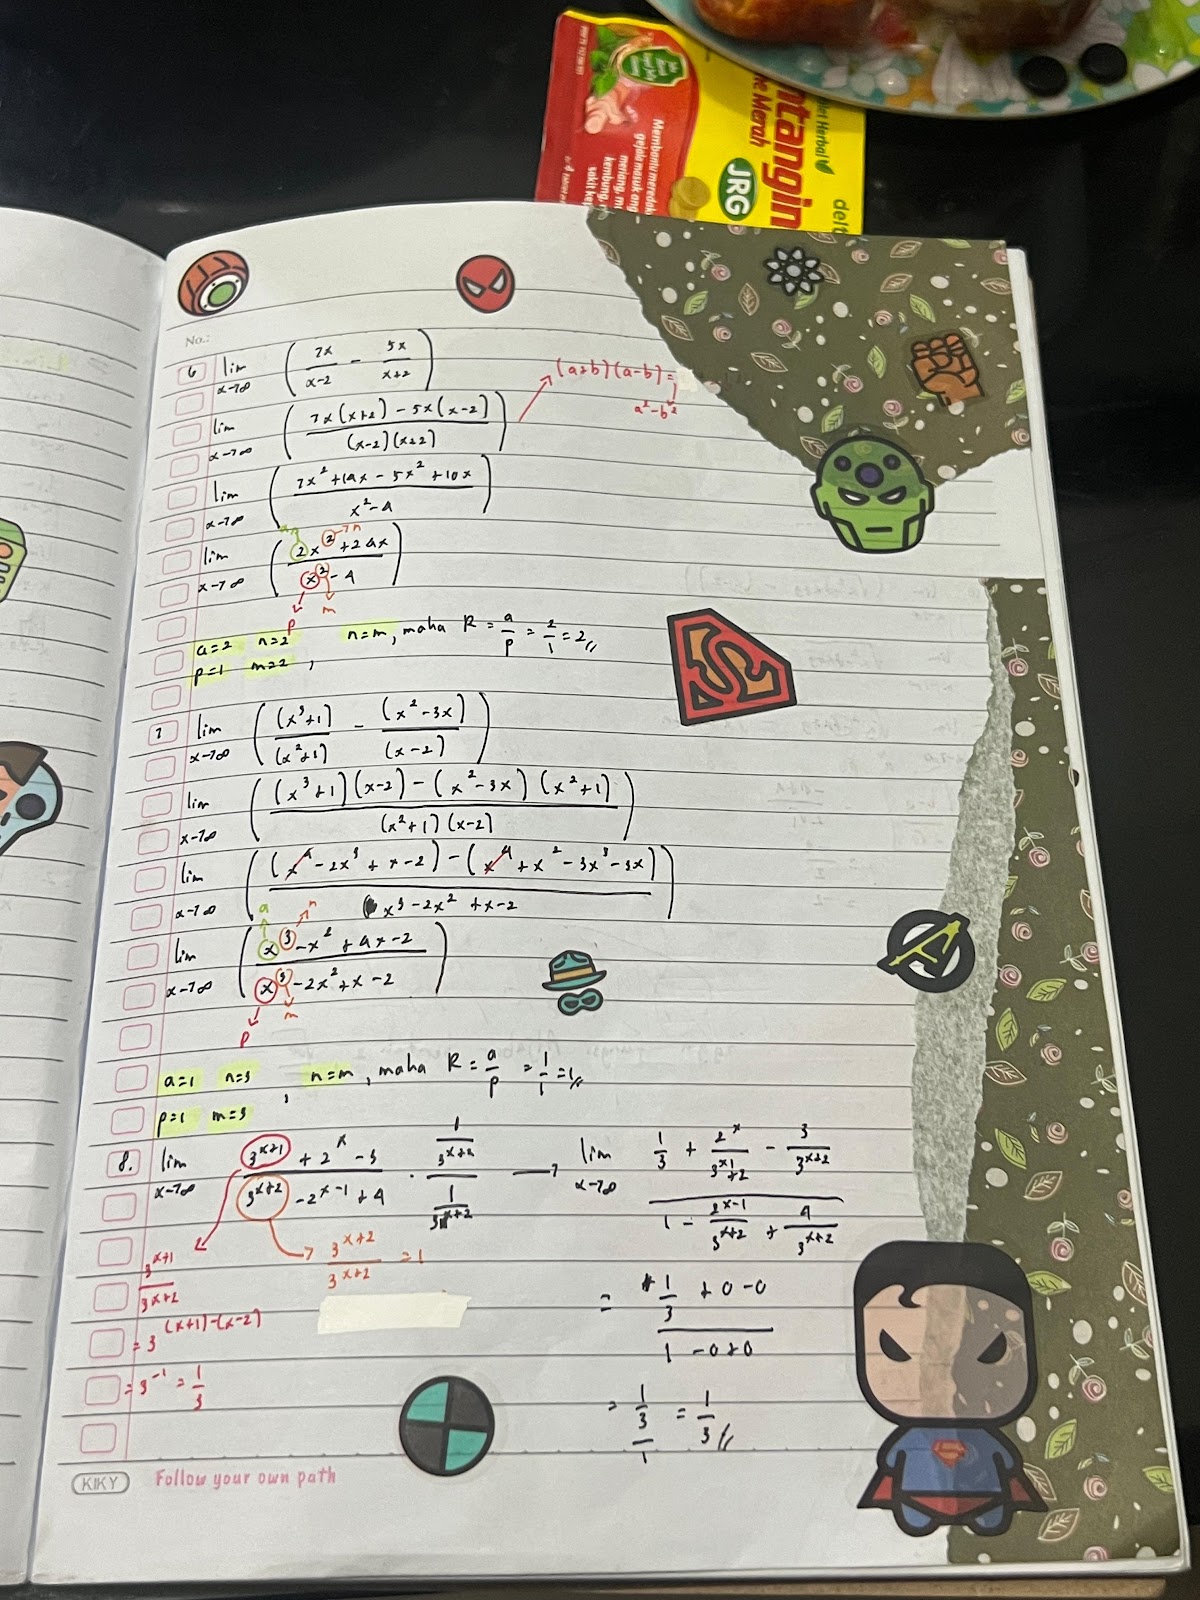 MINTP: 132 780 597
Membantu meredakan
gejala masuk ang
meriang, m
kembung,
sakit kep
ntangin
JRG
let Herbal
e Merah
delt
No.:
6 lim x→∞ (7x/(x-2) - 5x/(x+2))
(a+b)(a-b) =
a²-b²
lim x→∞ ((7x(x+2) - 5x(x-2))/((x-2)(x+2)))
lim x→∞ ((7x² + 14x - 5x² + 10x)/(x²-4))
→ n
lim x→∞ ((2x² + 24x)/(x² - 4))
p m
a=2 n=2 n=m, maka R = a/p = 2/1 = 2//
p=1 m=2 ,
7 lim x→∞ ((x³+1)/(x²+1) - (x²-3x)/(x-2))
lim x→∞ (((x³+1)(x-2) - (x²-3x)(x²+1))/((x²+1)(x-2)))
lim x→∞ (((x⁴ - 2x³ + x - 2) - (x⁴ + x² - 3x³ - 3x))/(x³ - 2x² + x - 2))
a n
lim x→∞ ((x³ - x² + 4x - 2)/(x³ - 2x² + x - 2))
p m
a=1 n=3 n=m, maka R = a/p = 1/1 = 1//
p=1 m=3 ,
8. lim x→∞ (3^(x+1) + 2^x - 3)/(3^(x+2) - 2^(x-1) + 4) · (1/3^(x+2))/(1/3^(x+2)) → lim x→∞ (1/3 + 2^x/3^(x+2) - 3/3^(x+2))/(1 - 2^(x-1)/3^(x+2) + 4/3^(x+2))
3^(x+1)/3^(x+2)
3^(x+2)/3^(x+2) = 1
= 3^((x+1)-(x-2))
= 3^-1 = 1/3
= (1/3 + 0 - 0)/(1 - 0 + 0)
= (1/3)/1 = 1/3//
KIKY Follow your own path